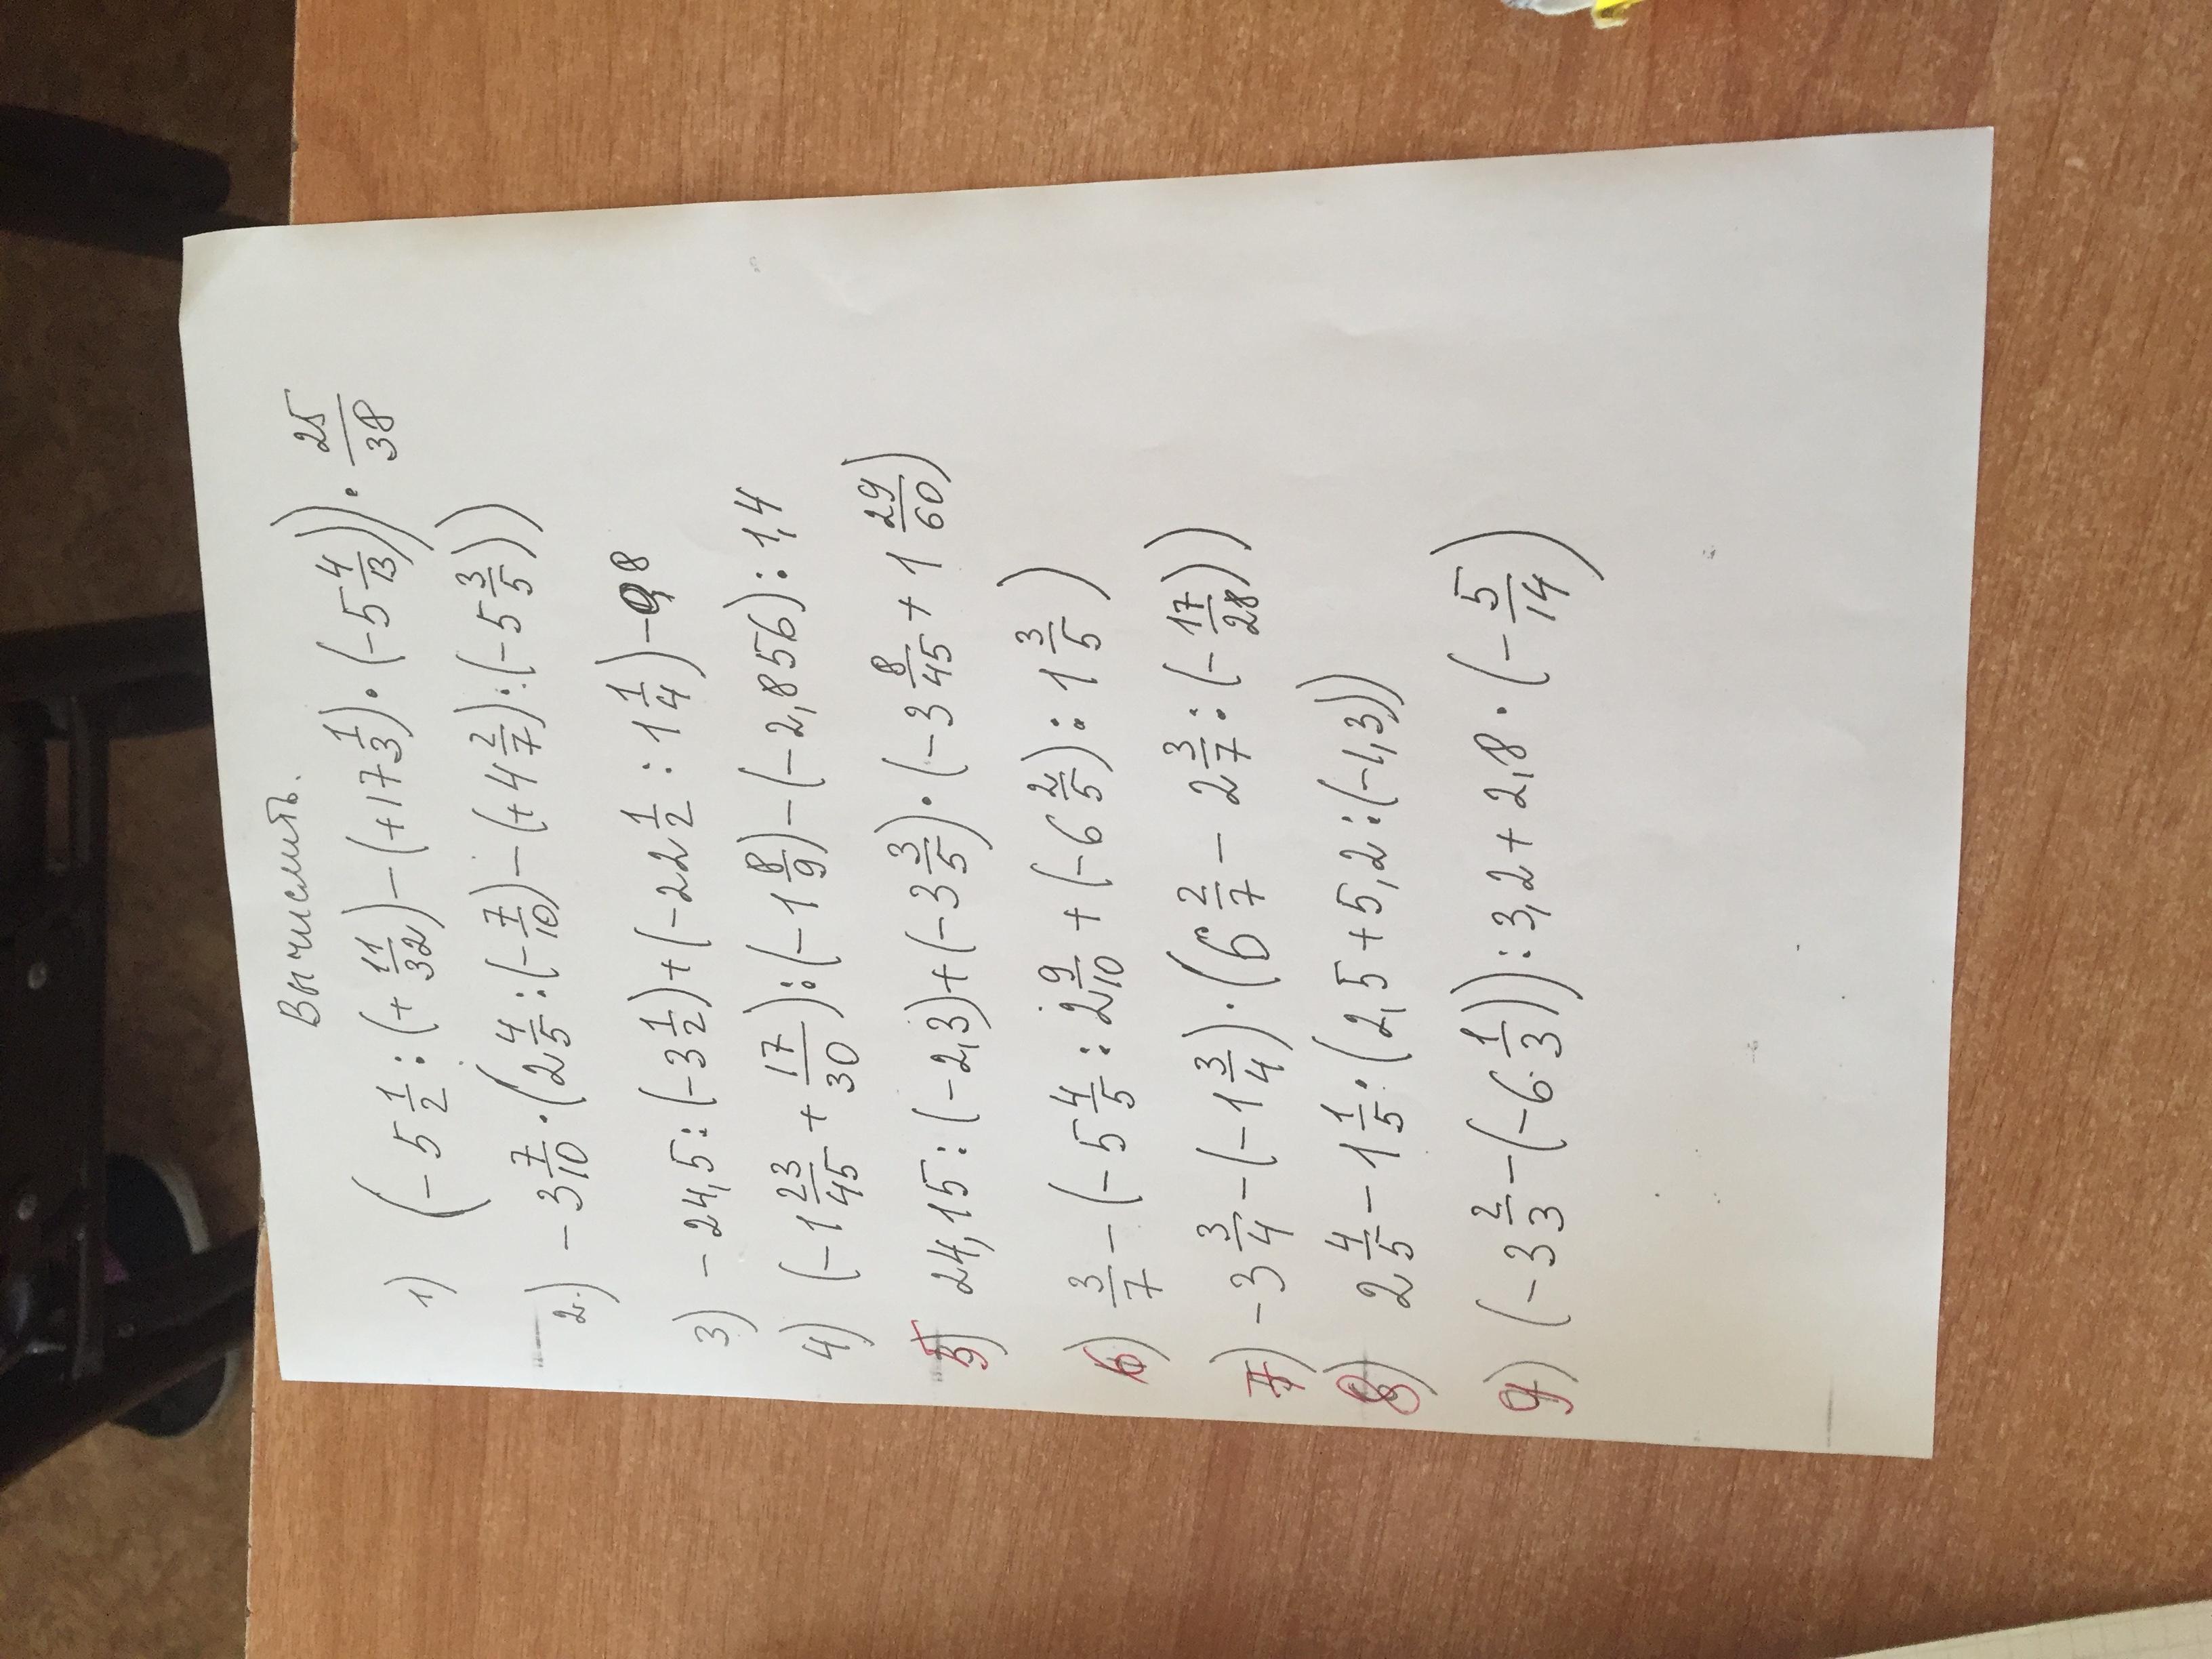 Вычислить.
1) (-5 1/2 : (+ 11/32) - (+17 1/3) · (-5 4/13)) · 25/38
2) -3 7/10 · (2 4/5 : (- 7/10) - (+4 2/7) : (-5 3/5))
3) -24,5 : (-3 1/2) + (-22 1/2 : 1 1/4) - 9,8
4) (-1 23/45 + 17/30) : (-1 8/9) - (-2,856) : 1,4
5) 24,15 : (-2,3) + (-3 3/5) · (-3 8/45 + 1 29/60)
6) 3/7 - (-5 4/5 : 2 9/10 + (-6 2/5) : 1 3/5)
7) -3 3/4 - (-1 3/4) · (6 2/7 - 2 3/7 : (- 17/28))
8) 2 4/5 - 1 1/5 : (2,5 + 5,2 : (-1,3))
9) (-3 2/3 - (-6 1/3)) : 3,2 + 2,8 · (- 5/14)